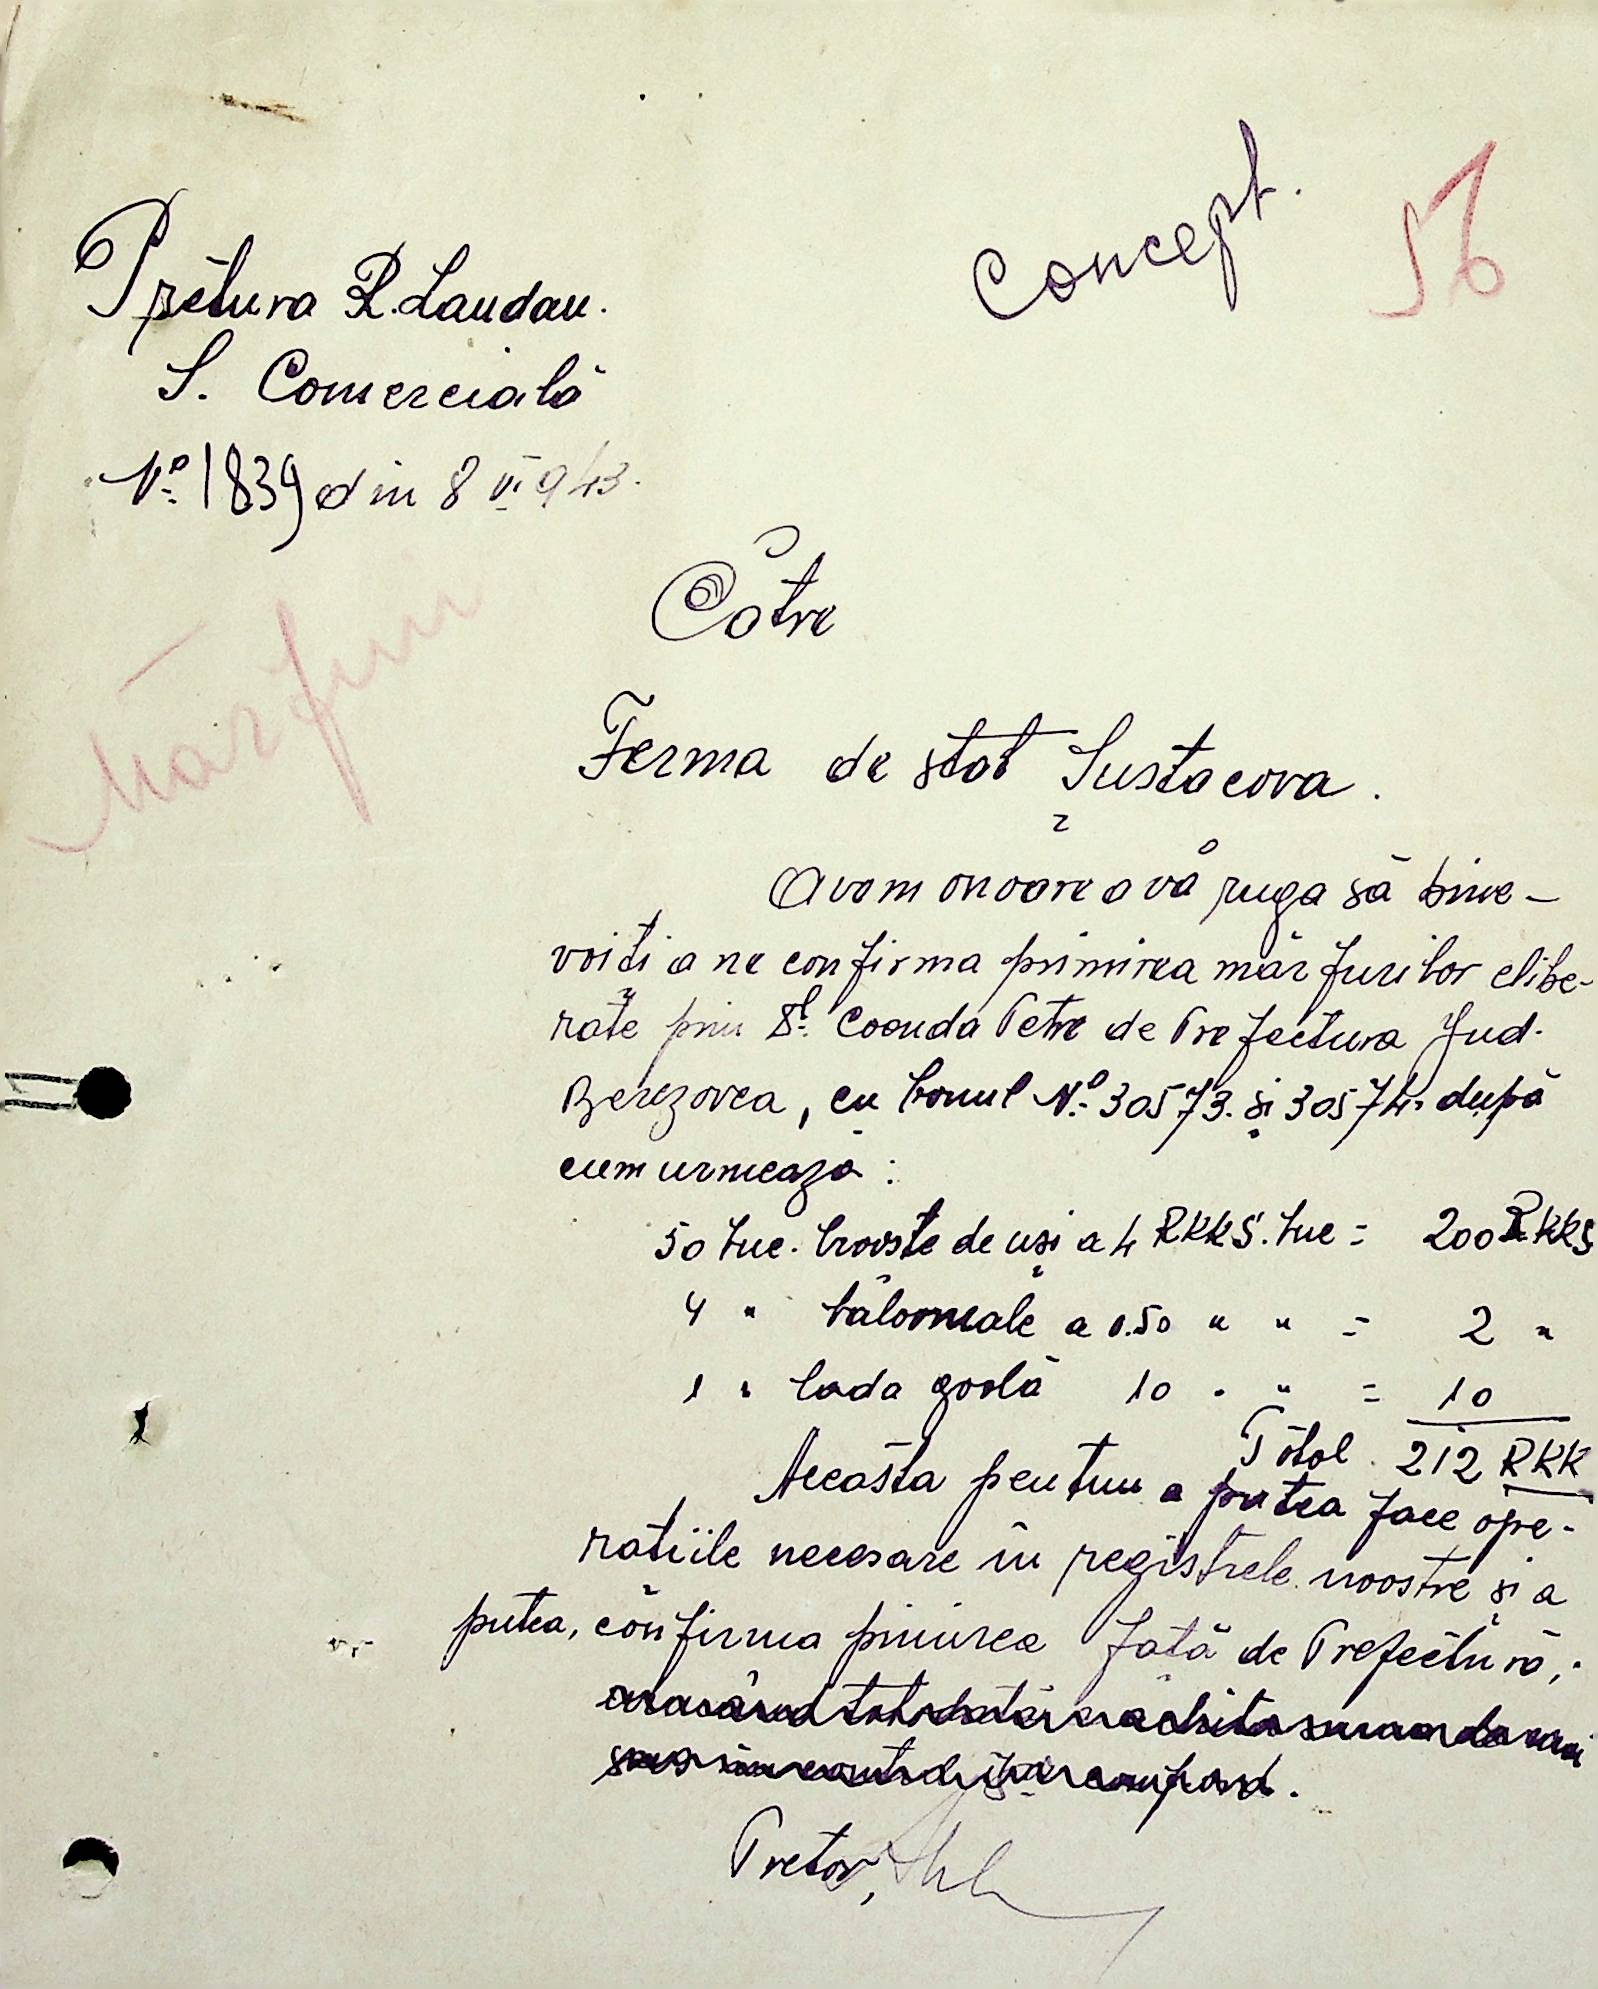 Concept.
56
Pretura R. Landau.
S. Comercială
Nº 1839 din 8 VI 943.
Mărfuri
Către
Ferma de stat Sustacova.
Avem onoarea vă ruga să bine-
voiți a ne confirma primirea mărfurilor elibe-
rate prin Petre de Prefectura Jud.
Berezovca, cu bonul Nº 30573. și 30574. după
cum urmează:
50 buc. broaște de uși a 4 RKKS. buc = 200 RKKS
4 " balamale a 0.50 " " = 2 "
1 " lada goală 10 " " = 10
Total 212 RKK
Aceasta pentru a putea face ope-
rațiile necesare în registrele noastre și a
putea, confirma primirea față de Prefectură,
Pretor,